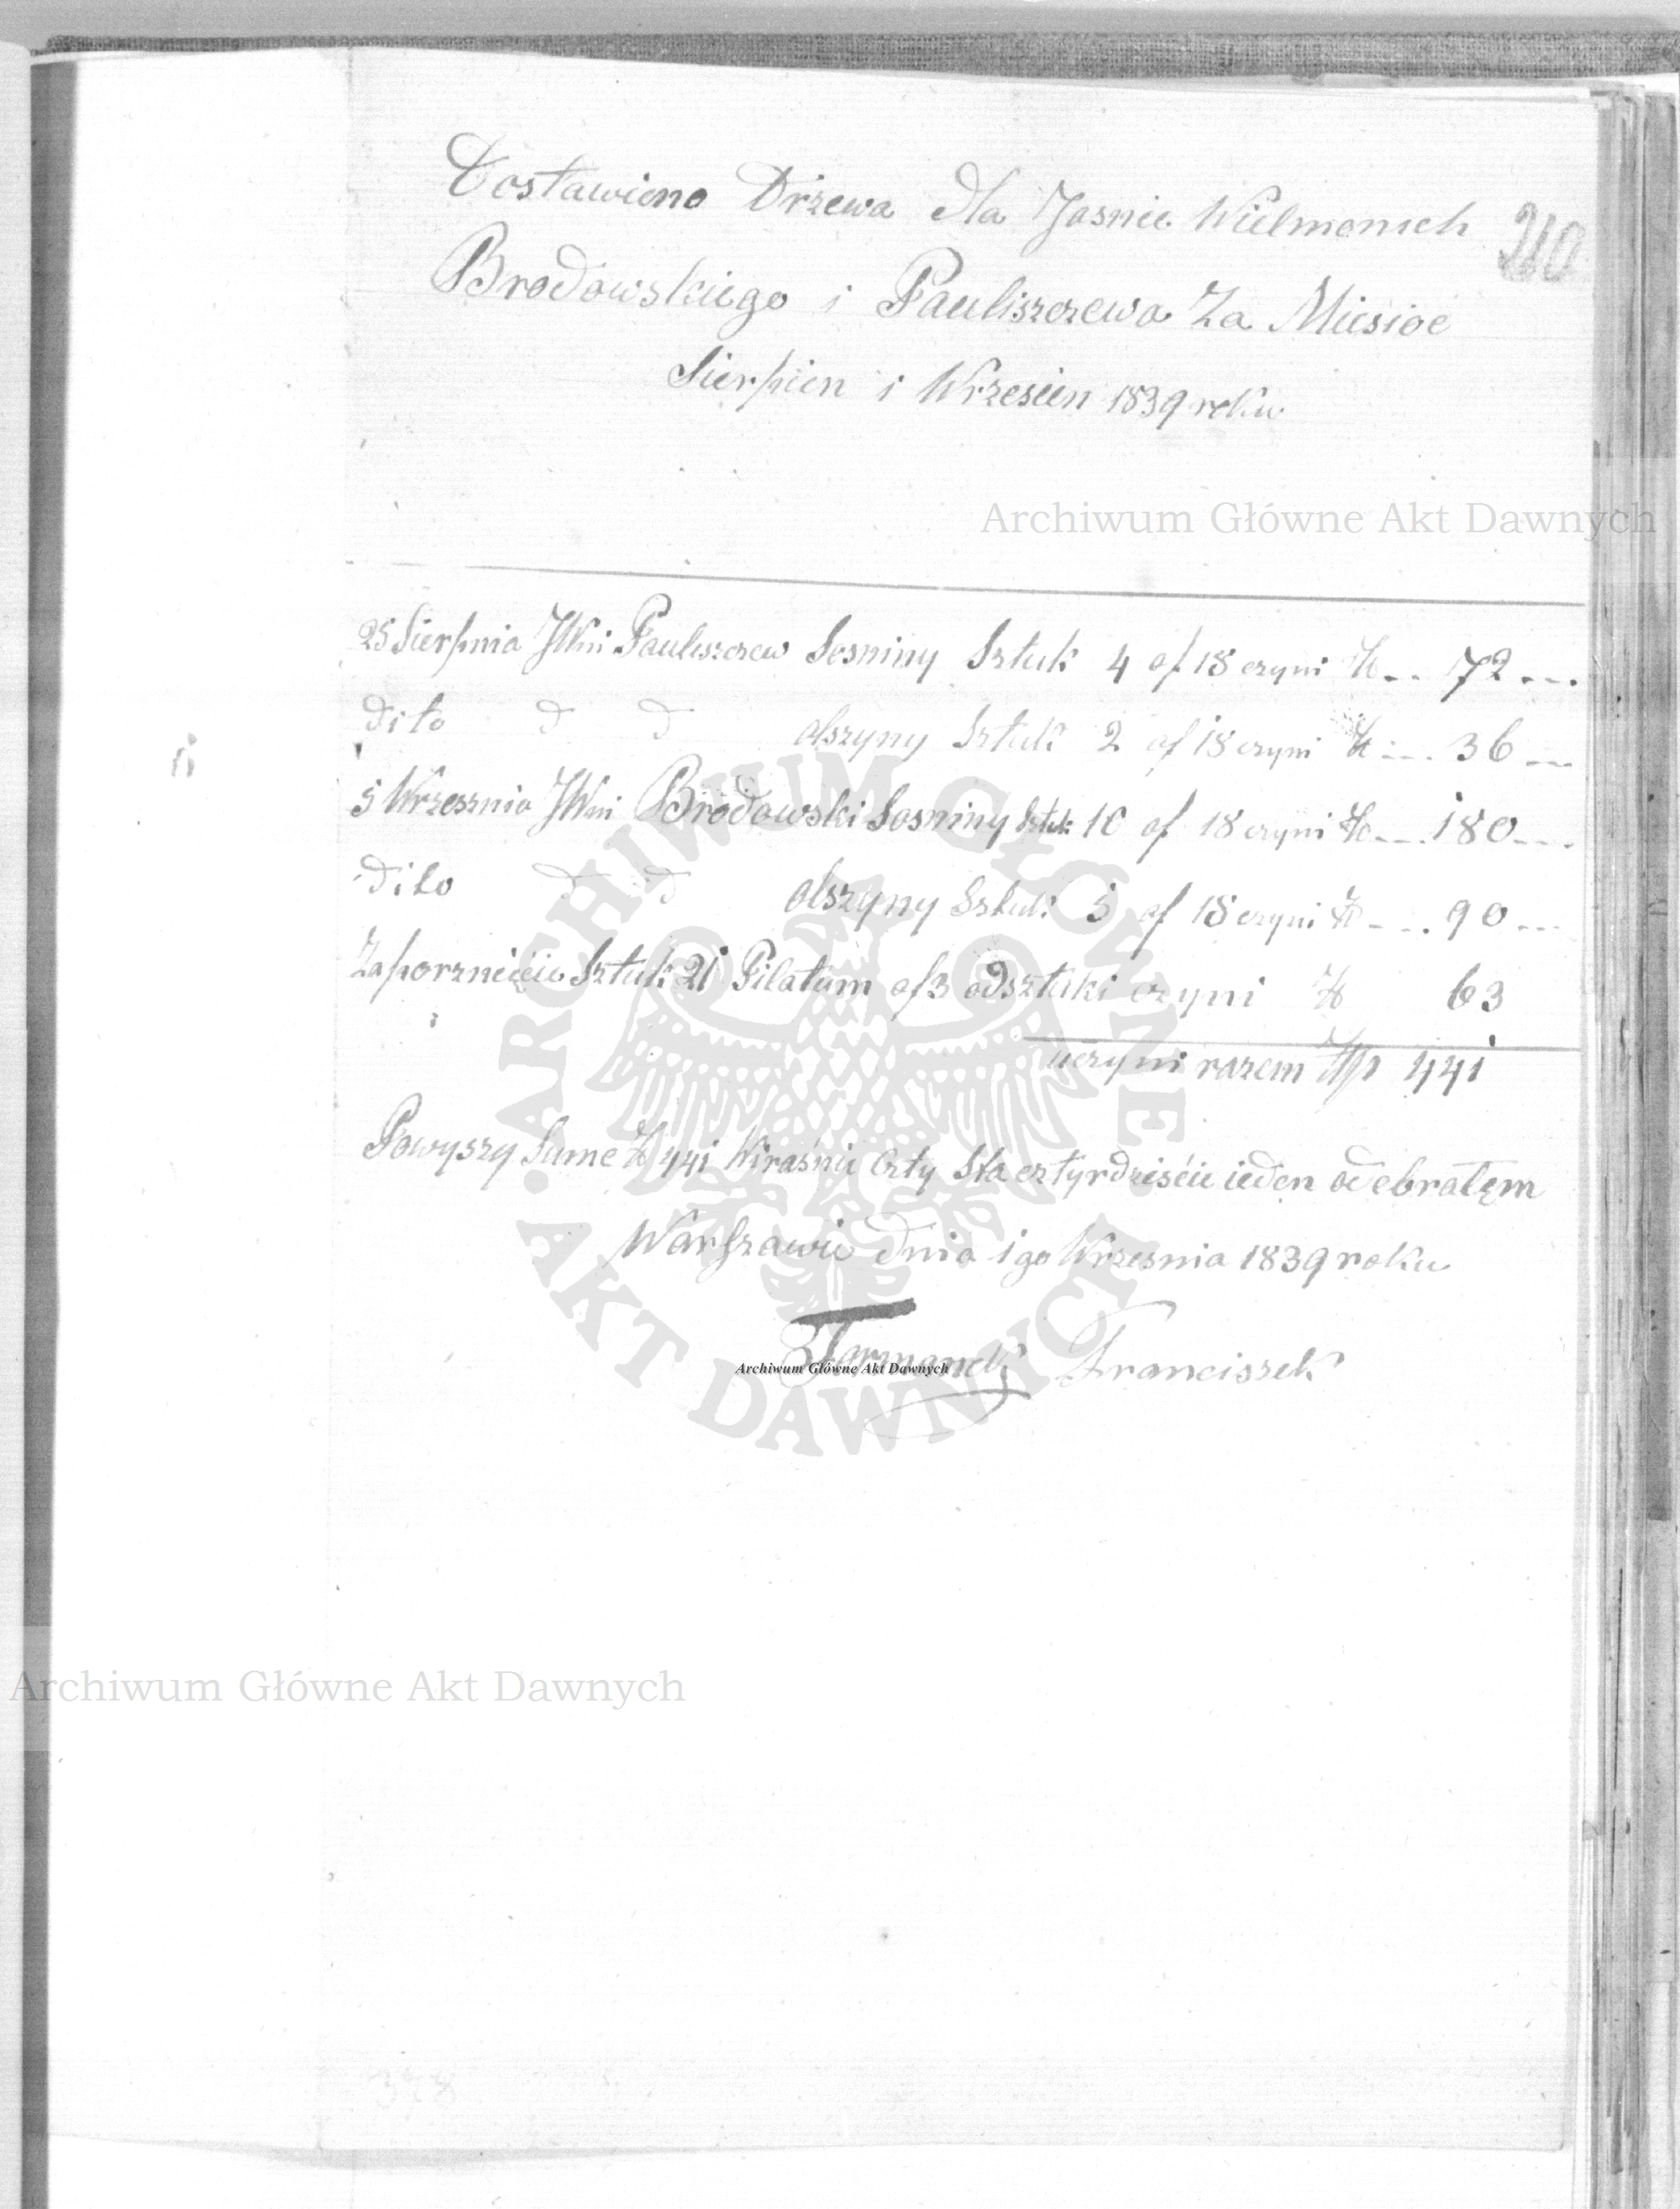 Dostawiono Drzewa dla Jasnie Wielmonich
210
Brodowskiego i Pauliszczewa Za Miesioc
Sierpien i Wrzesien 1839 roku
Archiwum Główne Akt Dawnych
25 Sierpnia JWni Pauliszczew Sosniny Sztuk 4 af 18 czyni Zł 72
dito d d olszyny Sztuk 2 af 18 czyni Zł 36
5 Wrzesznia JWni Brodowski Sosniny Sztuk 10 af 18 czyni Zł 180
dito d d olszyny Sztuk 5 af 18 czyni Zł 90
Zaporznięcie Sztuk 21 Pilatum af 3 odsztuki czyni Zł 63
uczyni razem Złp 441
Powyszy Sume Zł 441 Wiraśnie Czty Sta cztyrdzieście ieden odebratęm
Warszawie dnia 1go Wrzesnia 1839 roku
Franciszek
Archiwum Główne Akt Dawnych
ARCHIWUM GŁÓWNE AKT DAWNYCH
Archiwum Główne Akt Dawnych